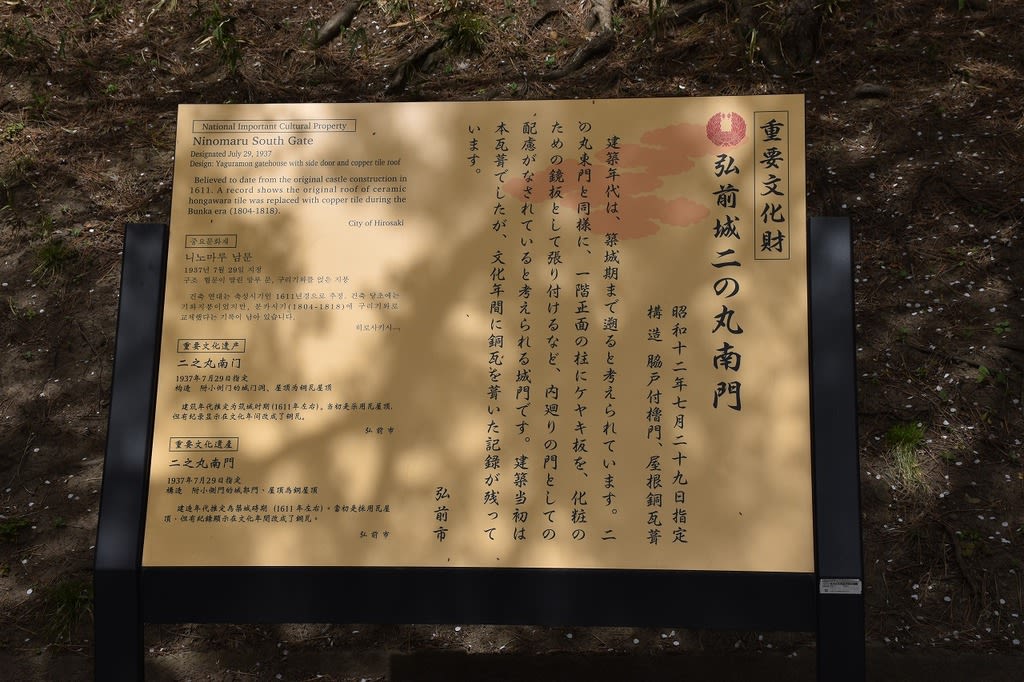 重要文化財
弘前城二の丸南門
昭和十二年七月二十九日指定
構造 脇戸付櫓門、屋根銅瓦葺
建築年代は、築城期まで遡ると考えられています。二
の丸東門と同様に、一階正面の柱にケヤキ板を、化粧の
ための鏡板として張り付けるなど、内廻りの門としての
配慮がなされていると考えられる城門です。建築当初は
本瓦葺でしたが、文化年間に銅瓦を葺いた記録が残って
います。
弘前市
National Important Cultural Property
Ninomaru South Gate
Designated July 29, 1937
Design: Yaguramon gatehouse with side door and copper tile roof
Believed to date from the original castle construction in
1611. A record shows the original roof of ceramic
hongawara tile was replaced with copper tile during the
Bunka era (1804-1818).
City of Hirosaki
중요문화재
니노마루 남문
1937년 7월 29일 지정
구조 협문이 딸린 망루 문, 구리기와를 얹은 지붕
건축 연대는 축성시기인 1611년경으로 추정. 건축 당초에는
기와지붕이었지만, 분카시기(1804-1818)에 구리기와로
교체했다는 기록이 남아 있습니다.
히로사키시
重要文化遗产
二之丸南门
1937年7月29日指定
构造 附小侧门的城门洞、屋顶为铜瓦屋顶
建筑年代推定为筑城时期(1611年左右)。当初是采用瓦屋顶,
但有纪录显示在文化年间改成了铜瓦。
弘前市
重要文化遺產
二之丸南門
1937年7月29日指定
構造 附小側門的城郭門、屋頂為銅屋頂
建造年代推定為築城時期 (1611年左右)。當初是採用瓦屋
頂,但有紀錄顯示在文化年間改成了銅瓦。
弘前市